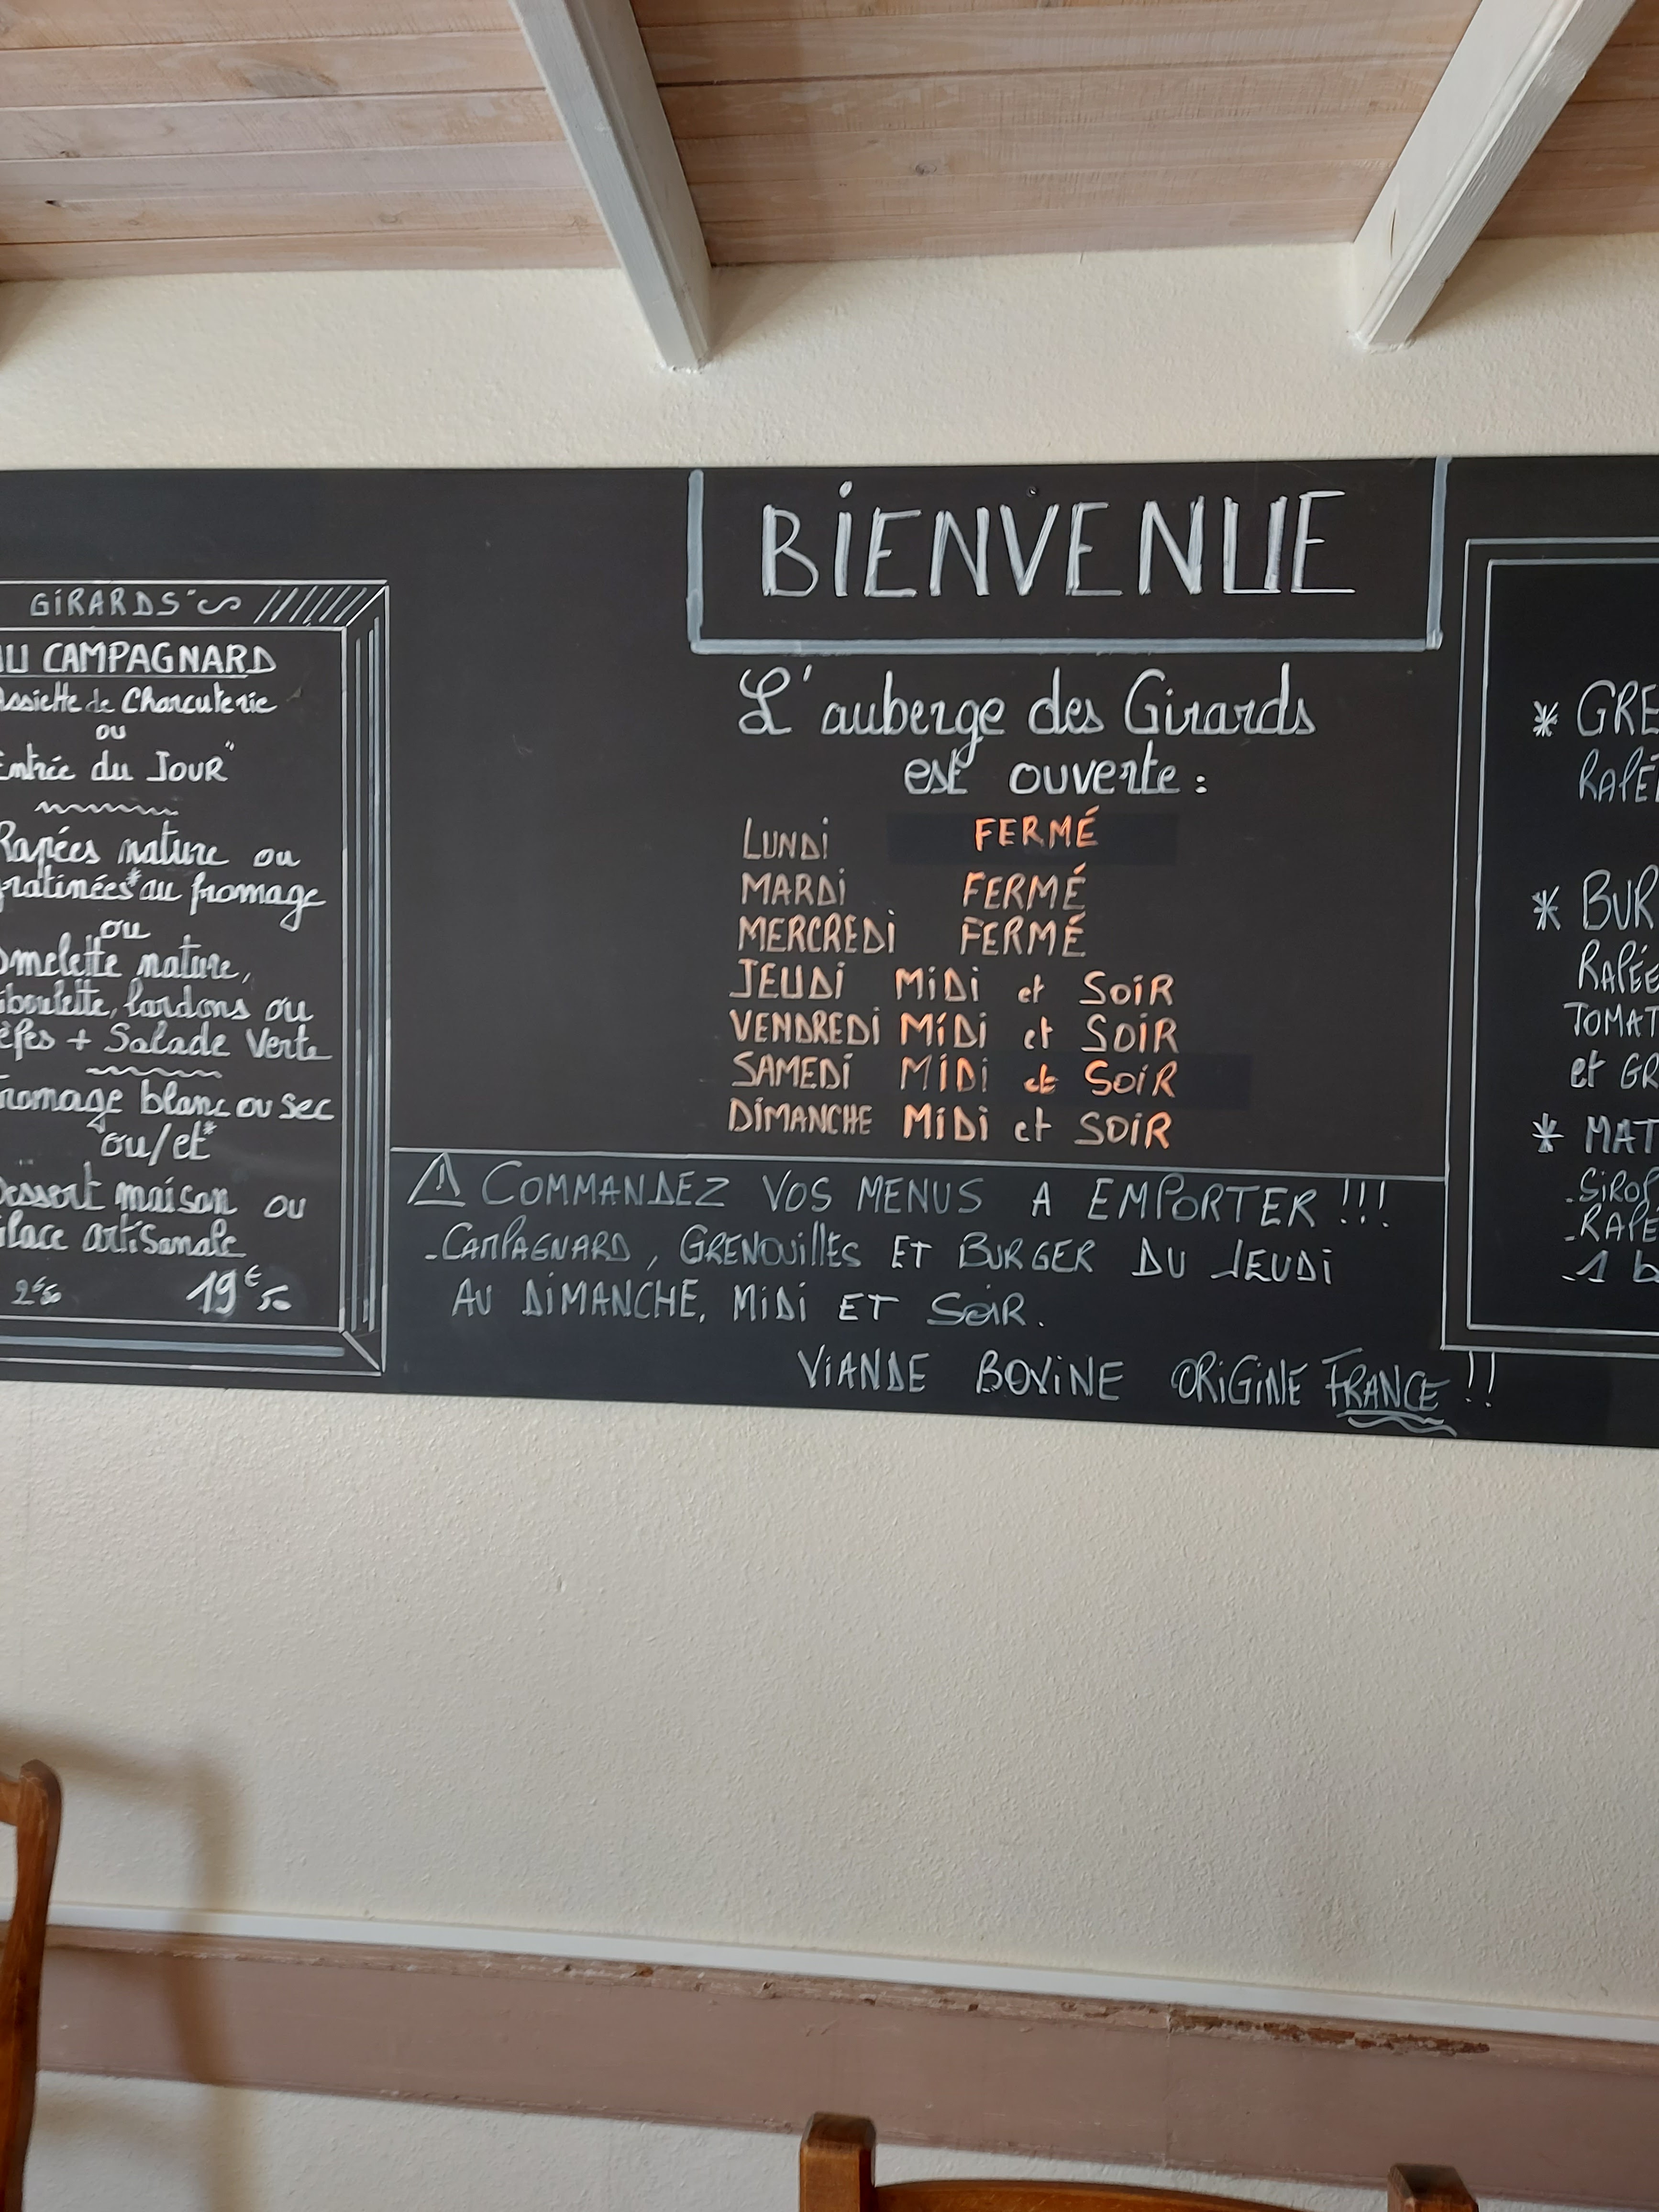 GiRARDS"
CAMPAGNARD
Assiette de Charcuterie
ou
Entrée du JouR"
Rapées nature ou
gratinées* au fromage
ou
Omelette nature,
ciboulette, lardons ou
+ Salade Verte
Fromage blanc ou sec
ou/et*
Dessert maison ou
Glace artisanale
2€50 19€50
BiENVENUE
L'auberge des Girards
est ouverte :
LUNDi FERMÉ
MARDi FERMÉ
MERCREDi FERMÉ
JEUDi MiDi et SOiR
VENDREDi MiDi et SOiR
SAMEDi MiDi et SOiR
DiMANCHE MiDi et SOiR
COMMANDEZ VOS MENUS A EMPORTER !!!
-CAMPAGNARD, GRENOUiLLES ET BURGER DU JEUDi
AU DiMANCHE, MiDi ET SOiR.
VIANDE BOViNE ORiGiNE FRANCE !!
* GRE
RAPÉ
* BUR
RAPÉE
TOMAT
et GR
* MAT
-SiROP
-RAPÉ
-1 b